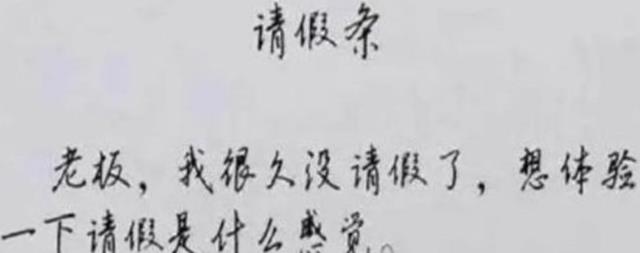 请假条
老板，我很久没请假了，想体验
一下请假是什么感觉。